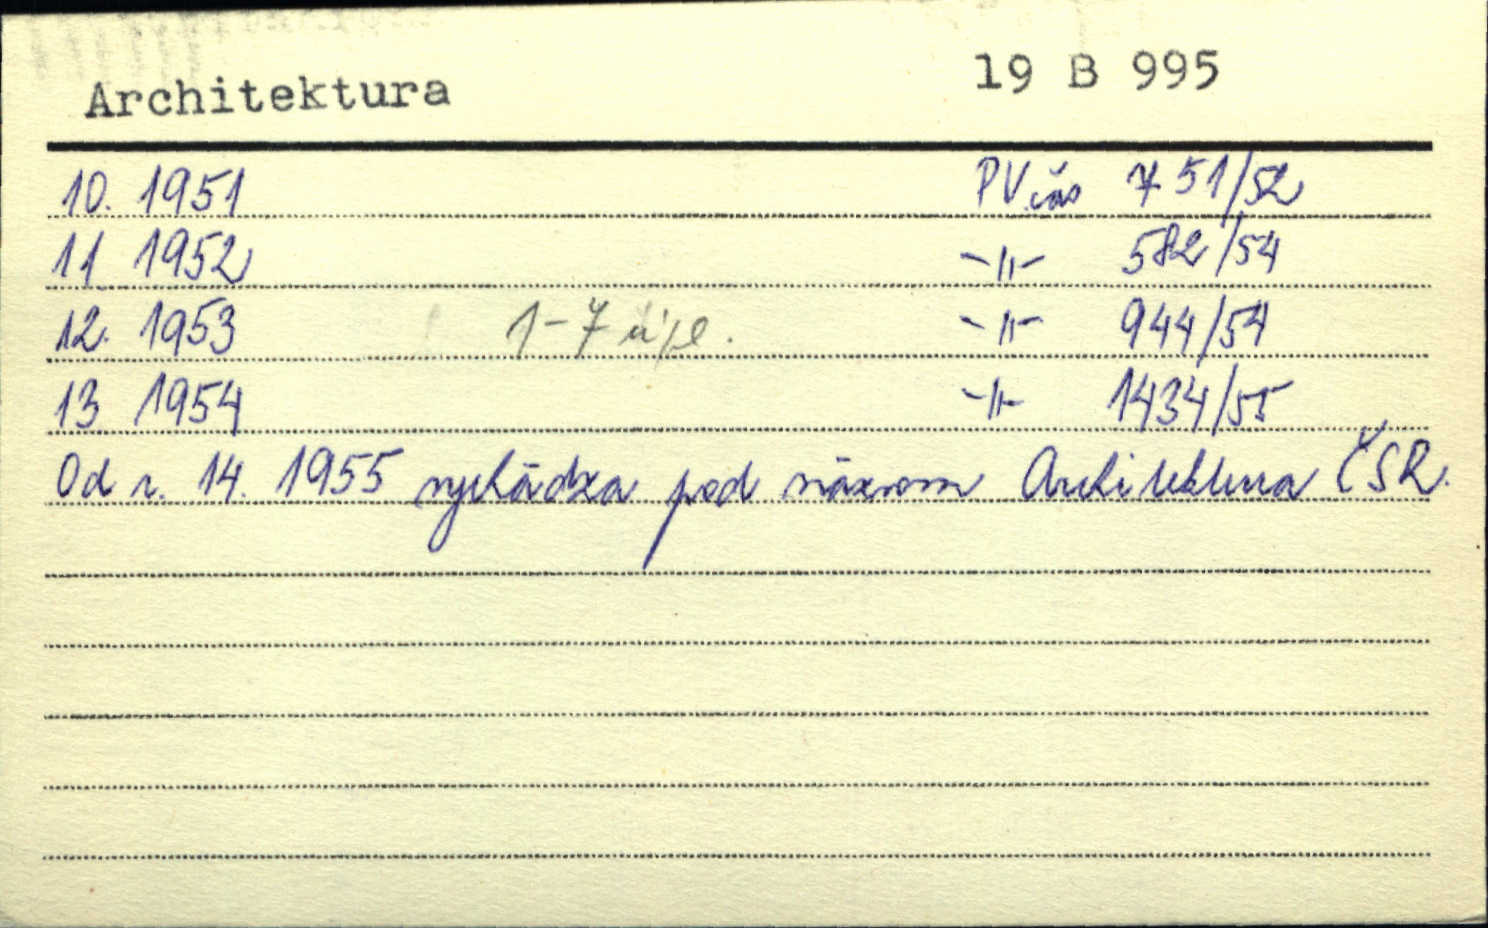 Architektura 19 B 995
10. 1951 PV.čas 751/52
11 1952 -||- 582/54
12. 1953 1-7 úpl. -||- 944/54
13 1954 -||- 1434/55
Od r. 14. 1955 vychádza pod názvom Architektura ČSR.